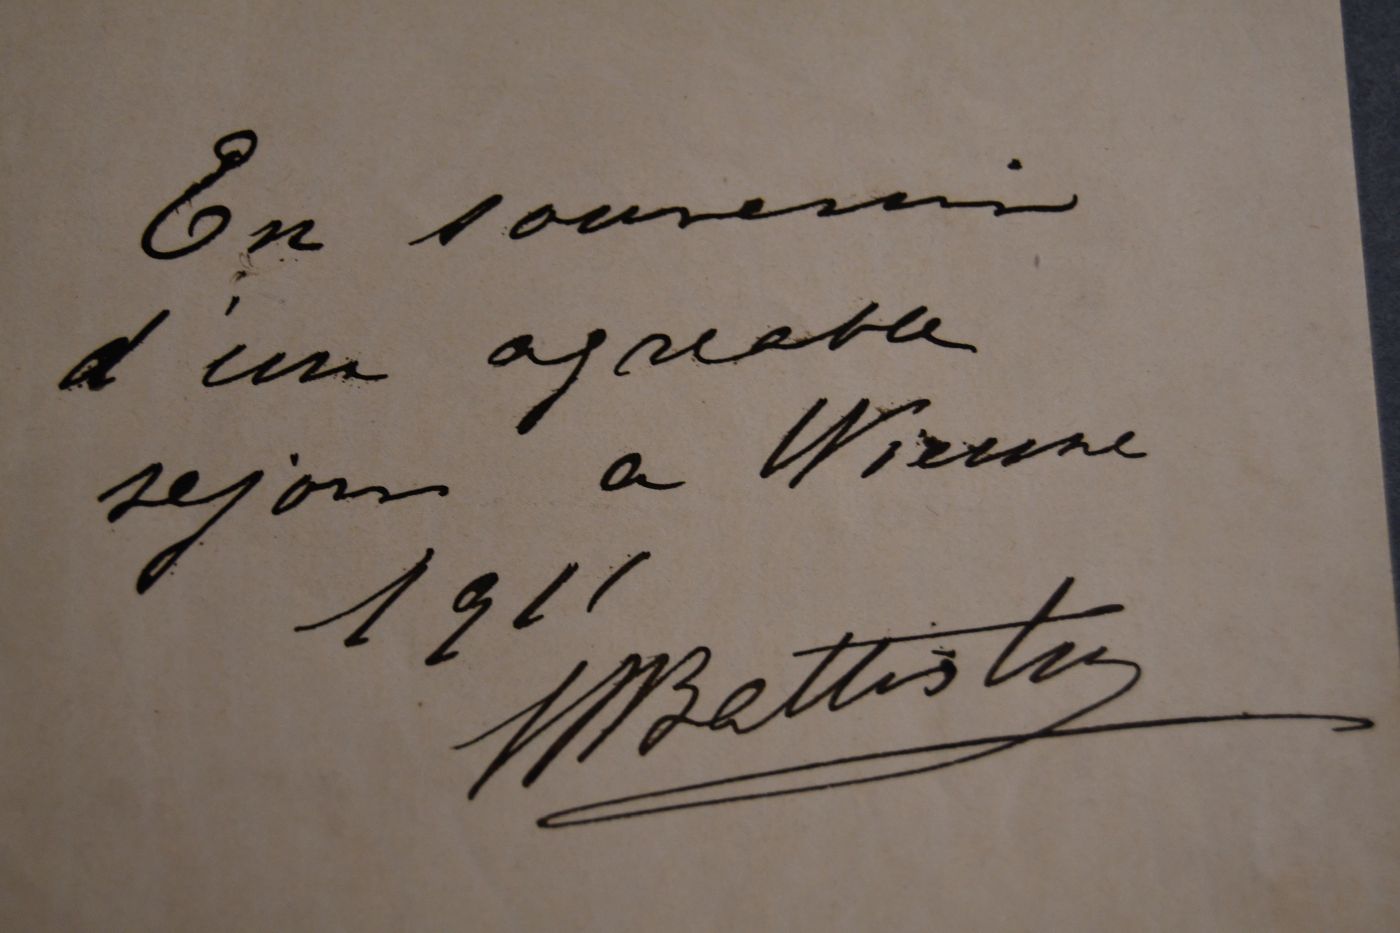 En souvenir
d'un agreable
sejour a Vienne
1911
MBattistini